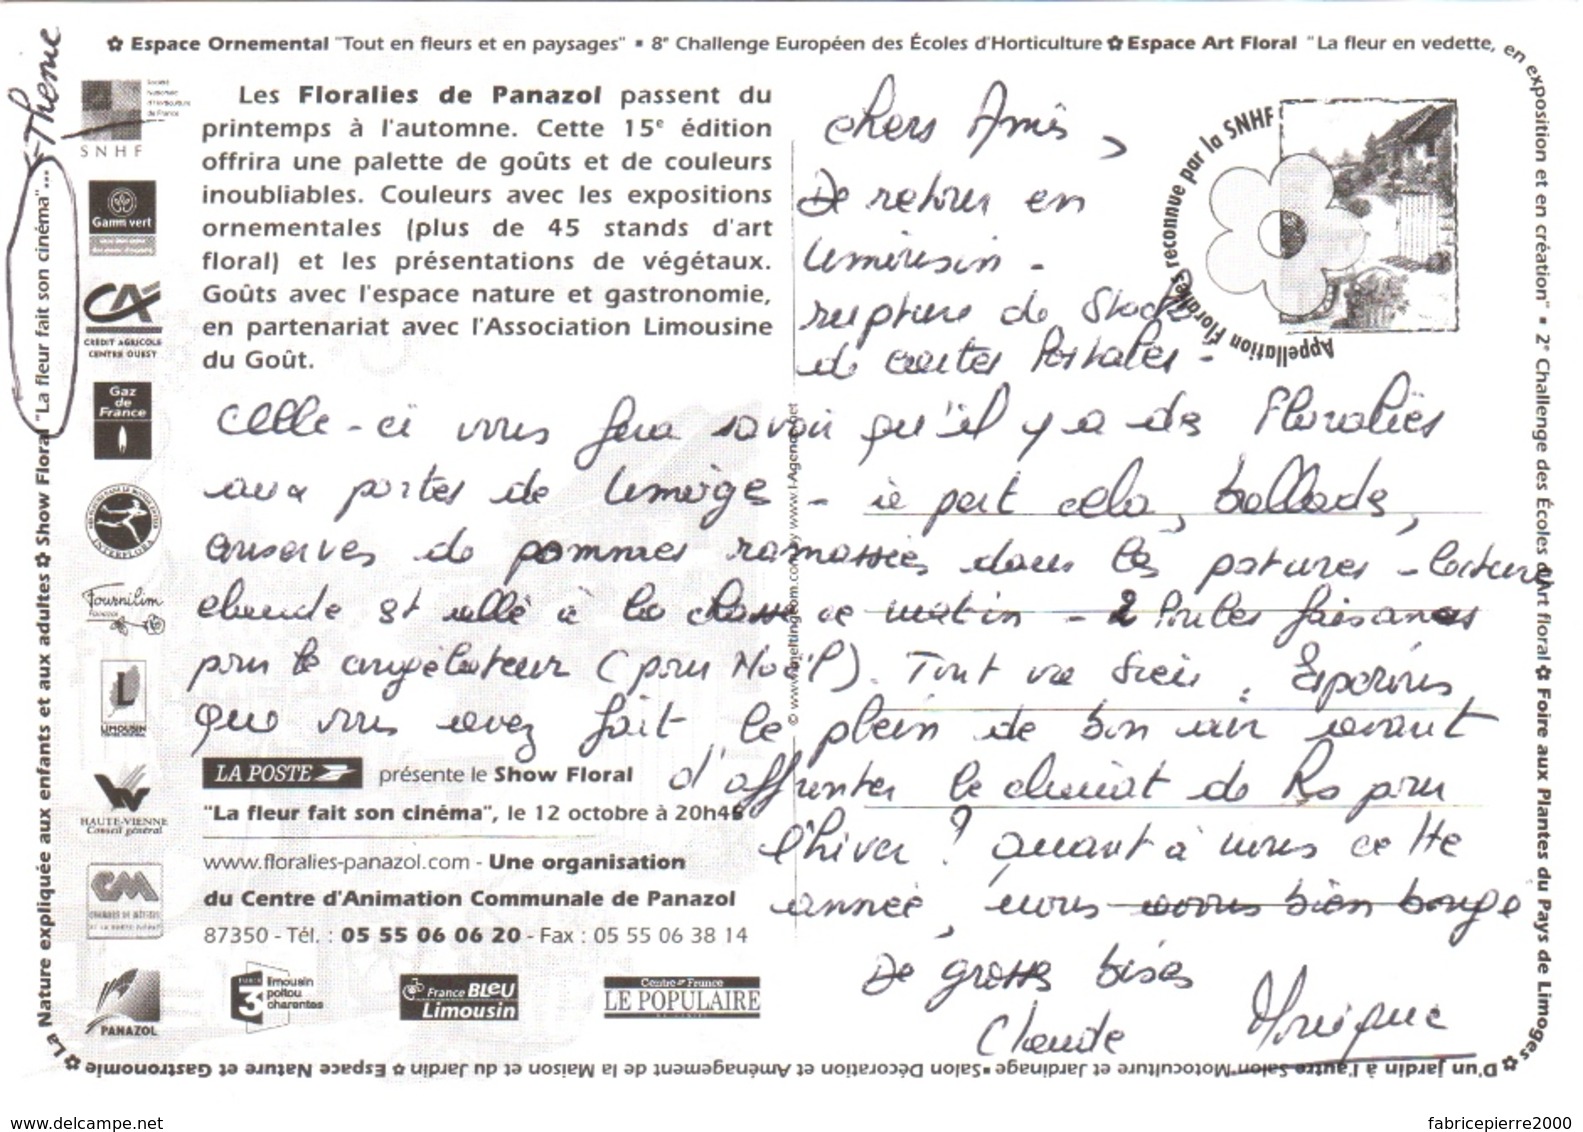 ✿ Espace Ornemental "Tout en fleurs et en paysages" ▪ 8e Challenge Européen des Écoles d'Horticulture ✿ Espace Art Floral "La fleur en vedette, en exposition et en création" ▪ 2e Challenge des Écoles d'Art floral ✿ Foire aux Plantes du Pays de Limoges ✿
D'un jardin à l'autre ▪ Salon Motoculture et Jardinage ▪ Salon Décoration et Aménagement de la Maison et du Jardin ✿ Espace Nature et Gastronomie ✿
La Nature expliquée aux enfants et aux adultes ✿ Show Floral "La fleur fait son cinéma"...
Thème
Société
Nationale
d'Horticulture
de France
SNHF
Gamm vert
CA
CRÉDIT AGRICOLE
CENTRE OUEST
Gaz
de
France
INTERFLORA
Fournilim
L
LIMOUSIN
HAUTE-VIENNE
Conseil général
CM
CHAMBRE DE MÉTIERS
PANAZOL
Les Floralies de Panazol passent du
printemps à l'automne. Cette 15e édition
offrira une palette de goûts et de couleurs
inoubliables. Couleurs avec les expositions
ornementales (plus de 45 stands d'art
floral) et les présentations de végétaux.
Goûts avec l'espace nature et gastronomie,
en partenariat avec l'Association Limousine
du Goût.
Appellation Floralies reconnue par la SNHF
Chers Amis,
De retour en
Limousin -
rupture de Stock
de cartes Postales -
Celle-ci vous fera savoir qu'il y a des Floralies
aux portes de Limoges - à part cela, ballades,
conserves de pommes ramassées dans les patures - lecture
Claude est allé à la chasse ce matin - 2 Poules faisanes
pour le congélateur (pour Noël). Tout va bien. Espérons
que vous avez fait le plein de bon air avant
d'affronter le climat de Rs pour
l'hiver ? Quant à nous cette
année, nous avons bien bougé
De grosses bises
Claude Monique
LA POSTE présente le Show Floral
"La fleur fait son cinéma", le 12 octobre à 20h45
www.floralies-panazol.com - Une organisation
du Centre d'Animation Communale de Panazol
87350 - Tél. : 05 55 06 06 20 - Fax : 05 55 06 38 14
France 3 limousin
poitou
charentes
France BLEU
Limousin
Centre France
LE POPULAIRE
www.delcampe.net
fabricepierre2000